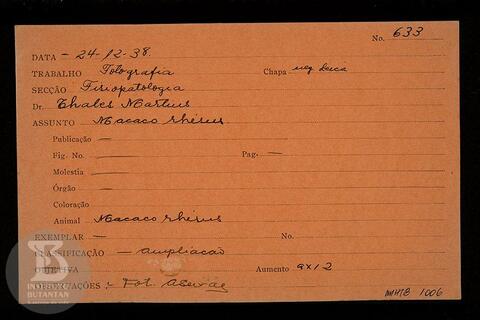 No. 633
DATA - 24-12-38.
TRABALHO Fotografia Chapa neg Leica
SECÇÃO Fisiopatologia
Dr. Thales Martins
ASSUNTO Macaco rhesus
Publicação —
Fig. No. — Pag. —
Molestia —
Órgão —
Coloração
Animal Macaco rhesus
EXEMPLAR — No.
CLASSIFICAÇÃO — ampliacão
OBJETIVA Aumento 9x12
OBSERVAÇÕES : Fot.
INSTITUTO BUTANTAN
1006